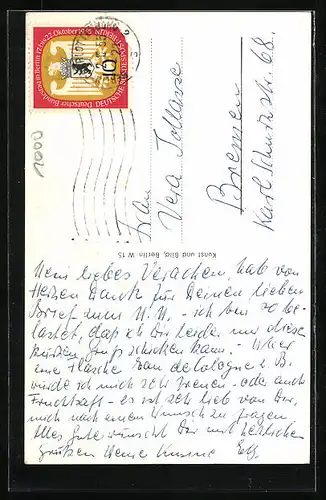 Deutscher Bundestag in Berlin 17. bis 22. Oktober 1955
DEUTSCHE BUNDESPOST
10
1000
Frau
Vera Tollasse
Bremen
Karl Schurzstr. 68.
Kunst und Bild, Berlin W 15
Mein liebes Verachen, hab von
Herzen Dank für Deinen lieben
Brief zum - ich bin so be-
lastet, daß ich Dir leider nur diesen
kurzen Gruß schicken kann. - Über
eine Flasche Eau de Cologne z. B.
würde ich mich sehr freuen - oder auch
Fruchtsaft - es ist sehr lieb von Dir,
mich nach einem Wunsch zu fragen
Alles Gute wünscht Dir mit herzlichen
Grüßen Deine